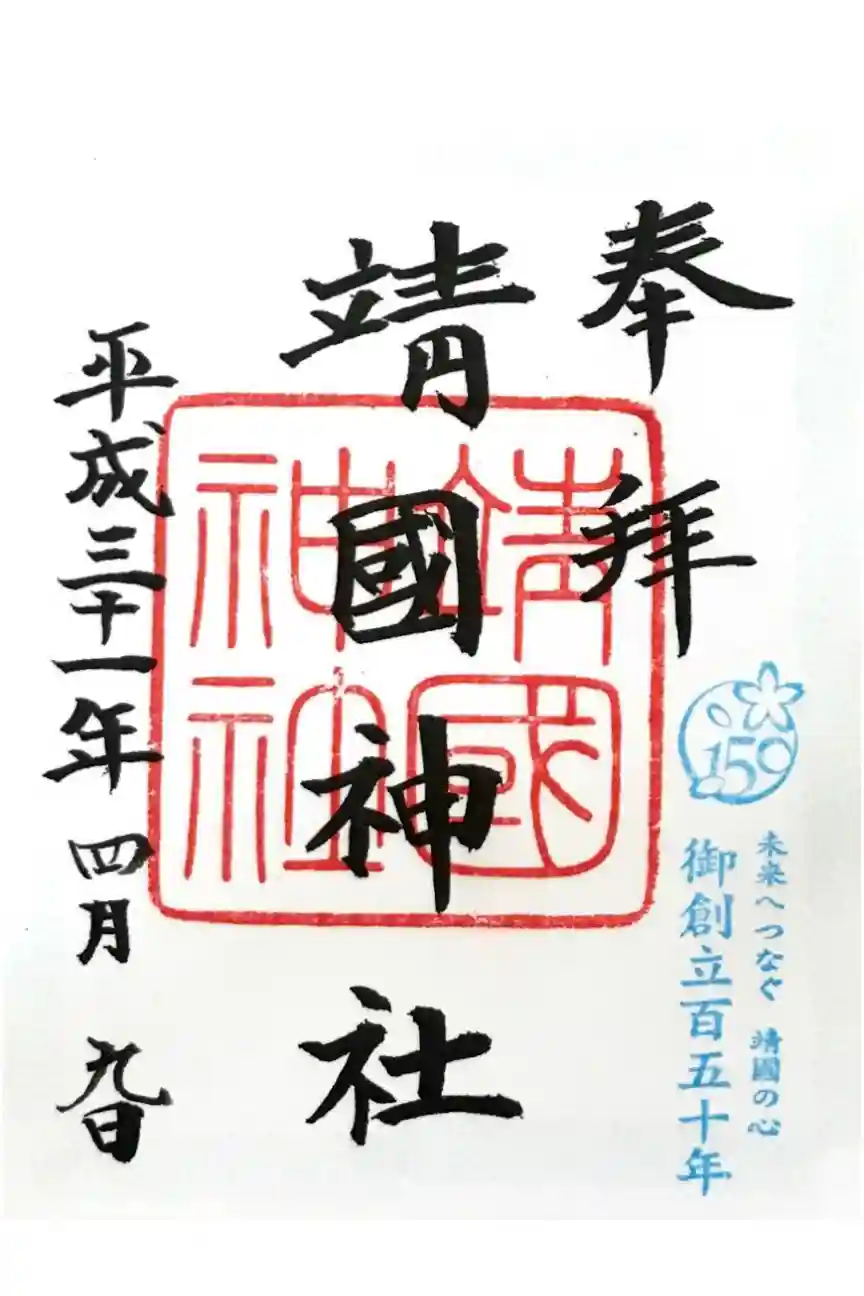 奉拝
150
未来へつなぐ 靖國の心
御創立百五十年
靖國神社
靖國神社
平成三十一年 四月 九日